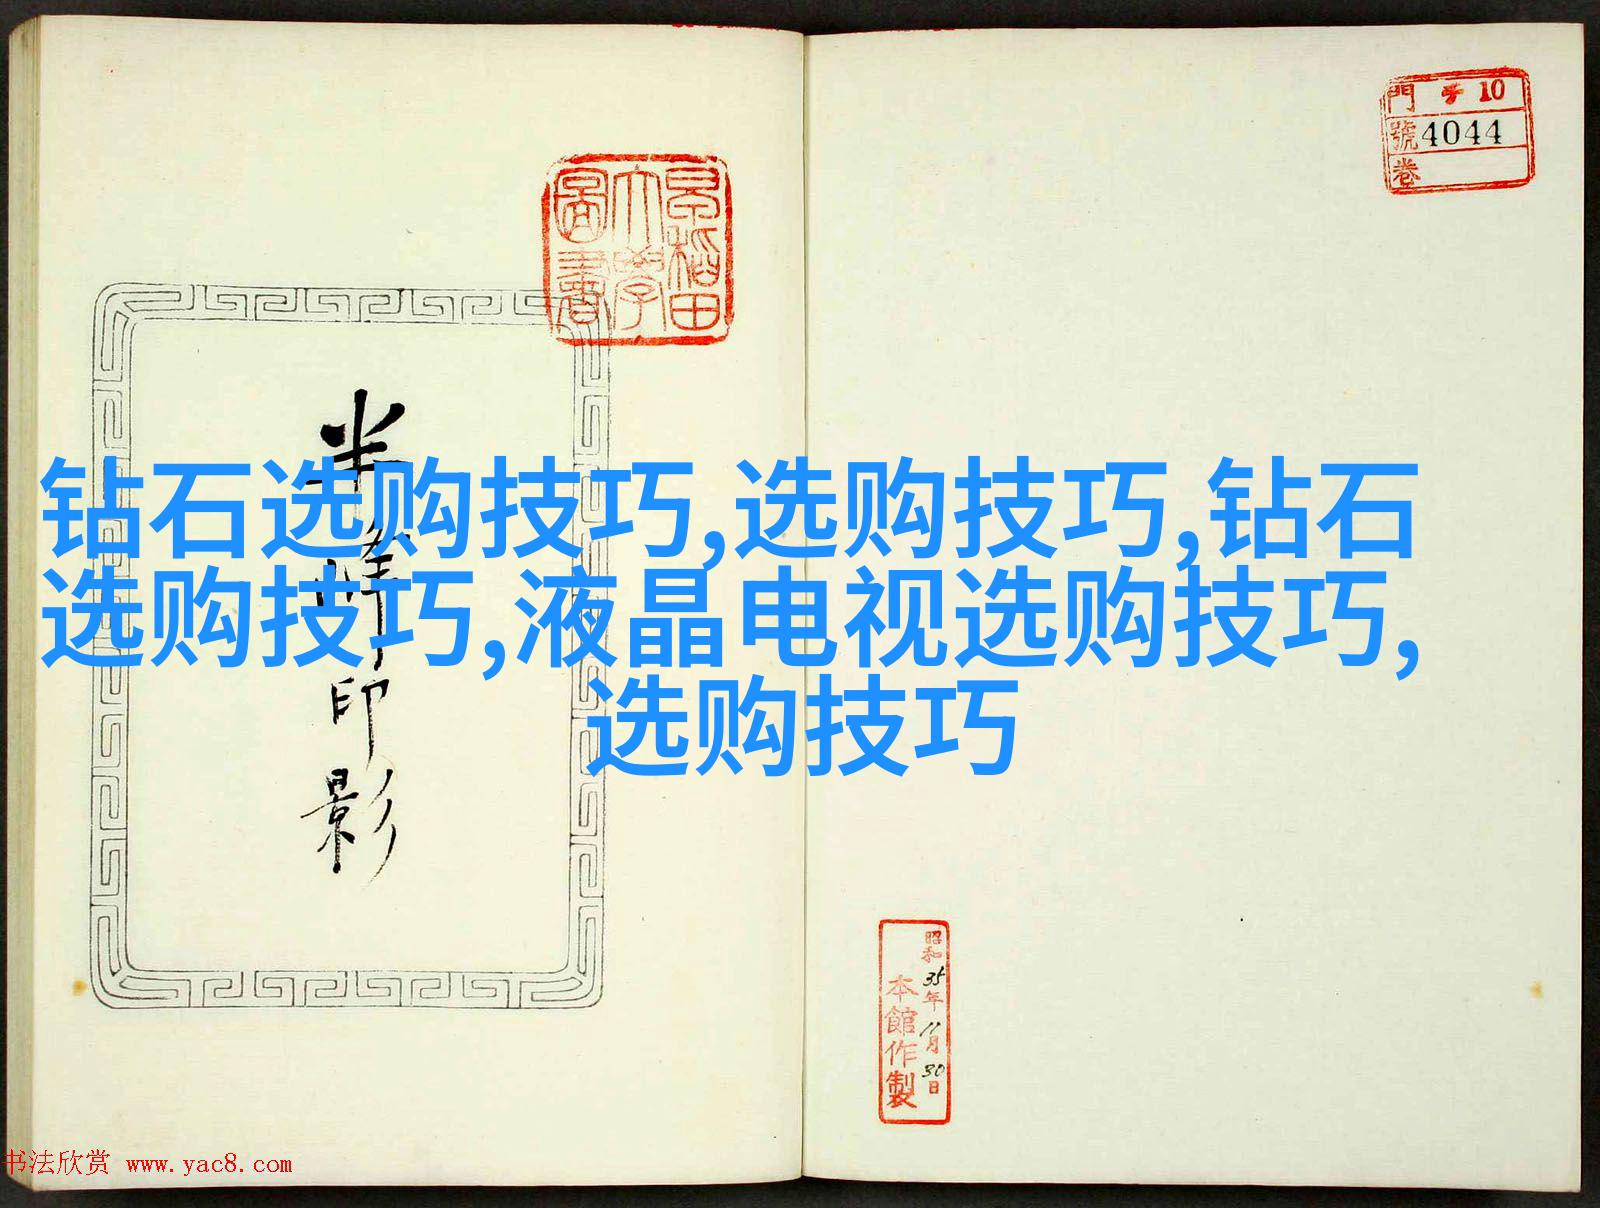 钻石选购技巧,选购技巧,钻石
选购技巧,液晶电视选购技巧,
选购技巧
半峰印影
早稻田
大學
圖書
門 チ 10
號 4044
卷
昭和35年11月30日
本館作製
书法欣赏 www.yac8.com